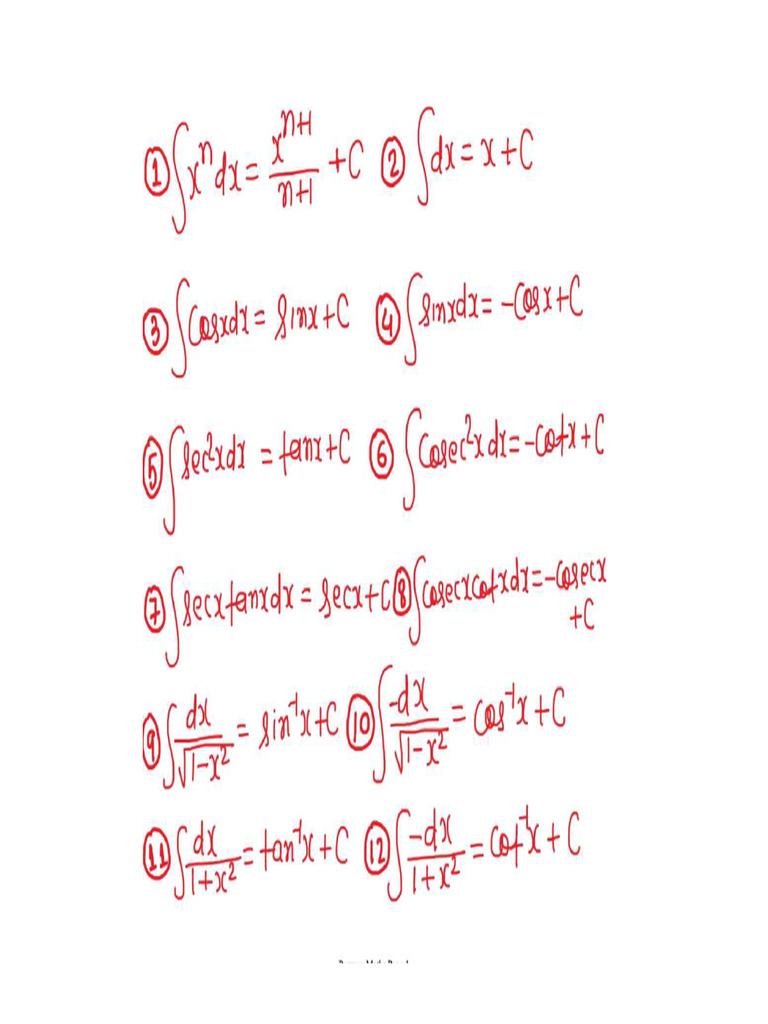 ① ∫xⁿdx = xⁿ⁺¹/n+1 + C ② ∫dx = x + C
③ ∫Cosxdx = sinx + C ④ ∫sinxdx = -Cosx + C
⑤ ∫sec²xdx = tanx + C ⑥ ∫Cosec²xdx = -Cotx + C
⑦ ∫secxtanxdx = secx + C ⑧ ∫Cosecxcotxdx = -Cosecx
+C
⑨ ∫dx/√1-x² = sin⁻¹x + C ⑩ ∫-dx/√1-x² = Cos⁻¹x + C
⑪ ∫dx/1+x² = tan⁻¹x + C ⑫ ∫-dx/1+x² = Cot⁻¹x + C